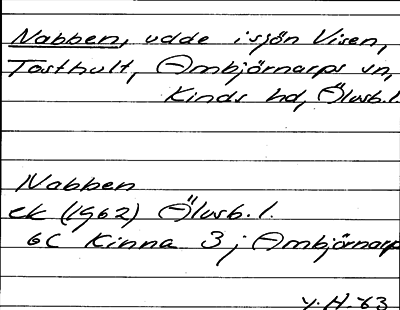 Nabben, udde i sjön Visen,
Tosthult, Ambjörnarps sn,
Kinds hd, Älvsb. l.
Nabben
ek (1962) Älvsb. l.
6C Kinna 3 j Ambjörnarp
Y. H. 73